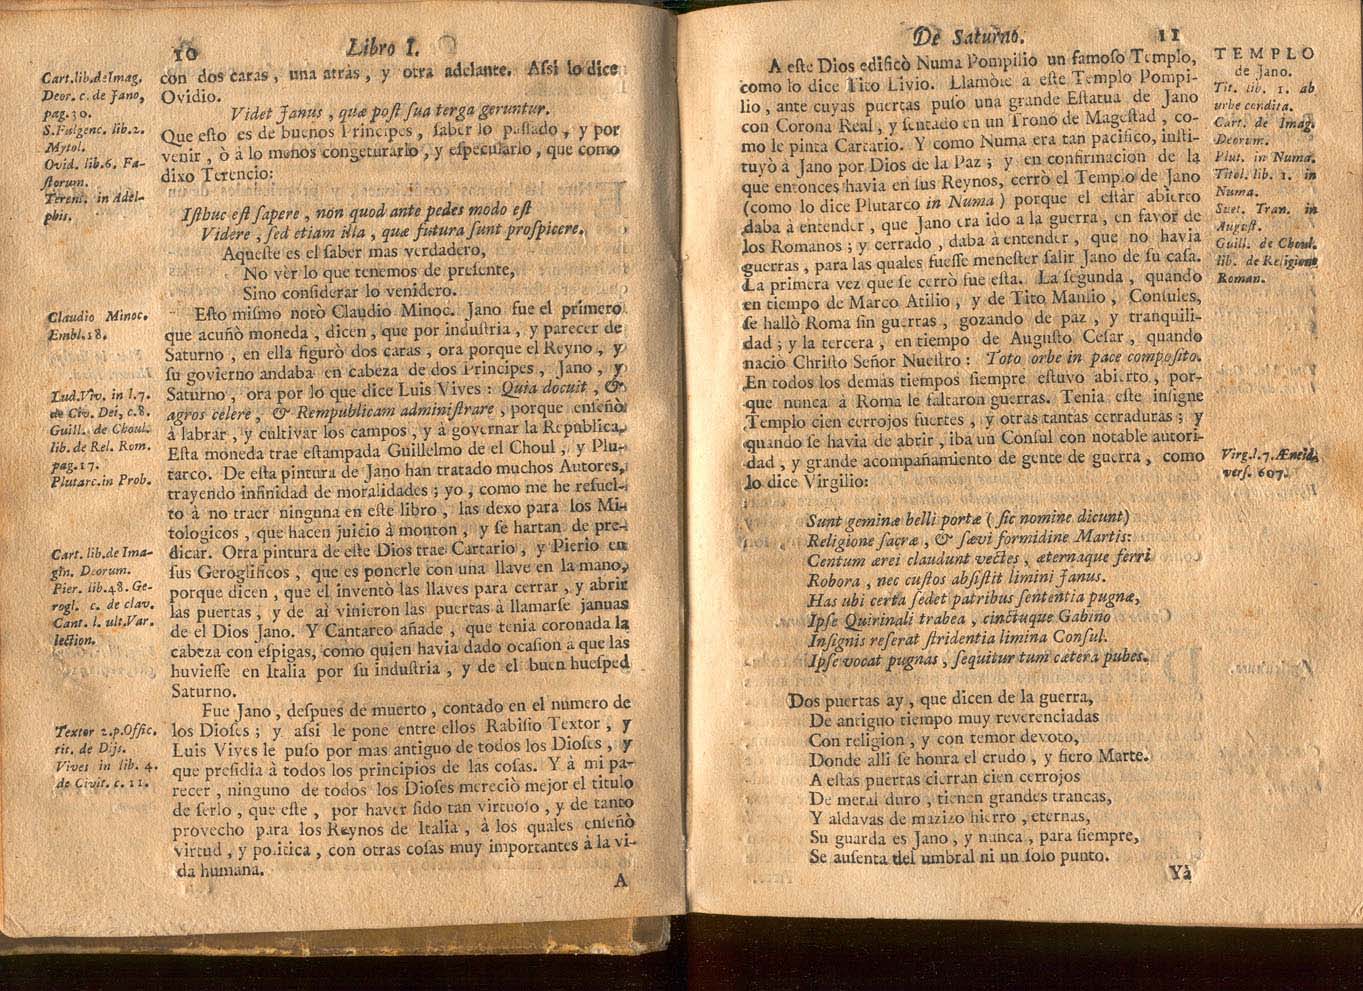 10
Libro I.
Cart.lib.deImag.
Deor. c. de Jano,
pag.30.
S.Fulgenc. lib.2.
Mytol.
Ovid. lib.6. Fa-
ſtorum.
Terent. in Adel-
phis.
con dos caras, una atràs, y otra adelante. Aſsi lo dice
Ovidio.
Videt Janus, quæ poſt ſua terga geruntur.
Que eſto es de buenos Principes, ſaber lo paſſado, y por
venir, ò à lo menos congeturarlo, y eſpecularlo, que como
dixo Terencio:
Iſthuc eſt ſapere, non quod ante pedes modo eſt
Videre, ſed etiam illa, quæ futura ſunt proſpicere.
Aqueſte es el ſaber mas verdadero,
No vèr lo que tenemos de preſente,
Sino conſiderar lo venidero.
Claudio Minoc.
Embl.18.
Lud.Viv. in l.7.
de Civ. Dei, c.8.
Guill. de Choul.
lib. de Rel. Rom.
pag.17.
Plutarc.in Prob.
Cart. lib.de Ima-
gin. Deorum.
Pier. lib.48. Ge-
rogl. c. de clav.
Cant. l. ult.Var.
lection.
Eſto miſmo notò Claudio Minoc. Jano fue el primero
que acuñò moneda, dicen, que por induſtria, y parecer de
Saturno, en ella figurò dos caras, ora porque el Reyno, y
ſu govierno andaba en cabeza de dos Principes, Jano, y
Saturno, ora por lo que dice Luis Vives: Quia docuit, &
agros celere, & Rempublicam adminiſtrare, porque enſeñò
à labrar, y cultivar los campos, y à governar la Republica.
Eſta moneda trae eſtampada Guillelmo de el Choul, y Plu-
tarco. De eſta pintura de Jano han tratado muchos Autores,
trayendo infinidad de moralidades; yo, como me he reſuel-
to à no traer ninguna en eſte libro, las dexo para los Mi-
tologicos, que hacen juicio à monton, y ſe hartan de pre-
dicar. Otra pintura de eſte Dios trae Cartario, y Pierio en
ſus Geroglificos, que es ponerle con una llave en la mano,
porque dicen, que el inventò las llaves para cerrar, y abrir
las puertas, y de ai vinieron las puertas à llamarſe januas
de el Dios Jano. Y Cantareo añade, que tenia coronada la
cabeza con eſpigas, como quien havia dado ocaſion à que las
huvieſſe en Italia por ſu induſtria, y de el buen hueſped
Saturno.
Textor 2.p.Offic.
tit. de Dijs.
Vives in lib. 4.
de Civit. c. 11.
Fue Jano, deſpues de muerto, contado en el numero de
los Dioſes; y aſsi le pone entre ellos Rabiſio Textor, y
Luis Vives le puſo por mas antiguo de todos los Dioſes, y
que preſidia à todos los principios de las coſas. Y à mi pa-
recer, ninguno de todos los Dioſes mereciò mejor el titulo
de ſerlo, que eſte, por haver ſido tan virtuoſo, y de tanto
provecho para los Reynos de Italia, à los quales enſeñò
virtud, y politica, con otras coſas muy importantes à la vi-
da humana.
A
De Saturno.
11
A eſte Dios edificò Numa Pompilio un famoſo Templo,
como lo dice Tito Livio. Llamòſe à eſte Templo Pompi-
lio, ante cuyas puertas puſo una grande Eſtatua de Jano
con Corona Real, y ſentado en un Trono de Mageſtad, co-
mo le pinta Cartario. Y como Numa era tan pacifico, inſti-
tuyò à Jano por Dios de la Paz; y en confirmacion de la
que entonces havia en ſus Reynos, cerrò el Templo de Jano
(como lo dice Plutarco in Numa) porque el eſtàr abierto
daba à entender, que Jano era ido a la guerra, en favor de
los Romanos; y cerrado, daba à entender, que no havia
guerras, para las quales fueſſe meneſter ſalir Jano de ſu caſa.
La primera vez que ſe cerrò fue eſta. La ſegunda, quando
en tiempo de Marco Atilio, y de Tito Manlio, Conſules,
ſe hallò Roma ſin guerras, gozando de paz, y tranquili-
dad; y la tercera, en tiempo de Auguſto Ceſar, quando
naciò Chriſto Señor Nueſtro: Toto orbe in pace compoſito.
En todos los demàs tiempos ſiempre eſtuvo abierto, por-
que nunca à Roma le faltaron guerras. Tenia eſte inſigne
Templo cien cerrojos fuertes, y otras tantas cerraduras; y
quando ſe havia de abrir, iba un Conſul con notable autori-
dad, y grande acompañamiento de gente de guerra, como
lo dice Virgilio:
TEMPLO
de Jano.
Tit. lib. 1. ab
urbe condita.
Cart. de Imag.
Deorum.
Plut. in Numa.
Titol. lib. 1. in
Numa.
Suet. Tran. in
Auguſt.
Guill. de Choul.
lib. de Religione
Roman.
Virg.l.7.Æneid.
verſ. 607.
Sunt geminæ belli portæ (ſic nomine dicunt)
Religione ſacræ, & ſævi formidine Martis:
Centum ærei claudunt vectes, æternaque ferri
Robora, nec cuſtos abſiſtit limini Janus.
Has ubi certa ſedet patribus ſententia pugnæ,
Ipſe Quirinali trabea, cinctuque Gabino
Inſignis reſerat ſtridentia limina Conſul.
Ipſe vocat pugnas, ſequitur tum cætera pubes.
Dos puertas ay, que dicen de la guerra,
De antiguo tiempo muy reverenciadas
Con religion, y con temor devoto,
Donde alli ſe honra el crudo, y fiero Marte.
A eſtas puertas cierran cien cerrojos
De metal duro, tienen grandes trancas,
Y aldavas de mazizo hierro, eternas,
Su guarda es Jano, y nunca, para ſiempre,
Se auſenta del umbral ni un ſolo punto.
Yà